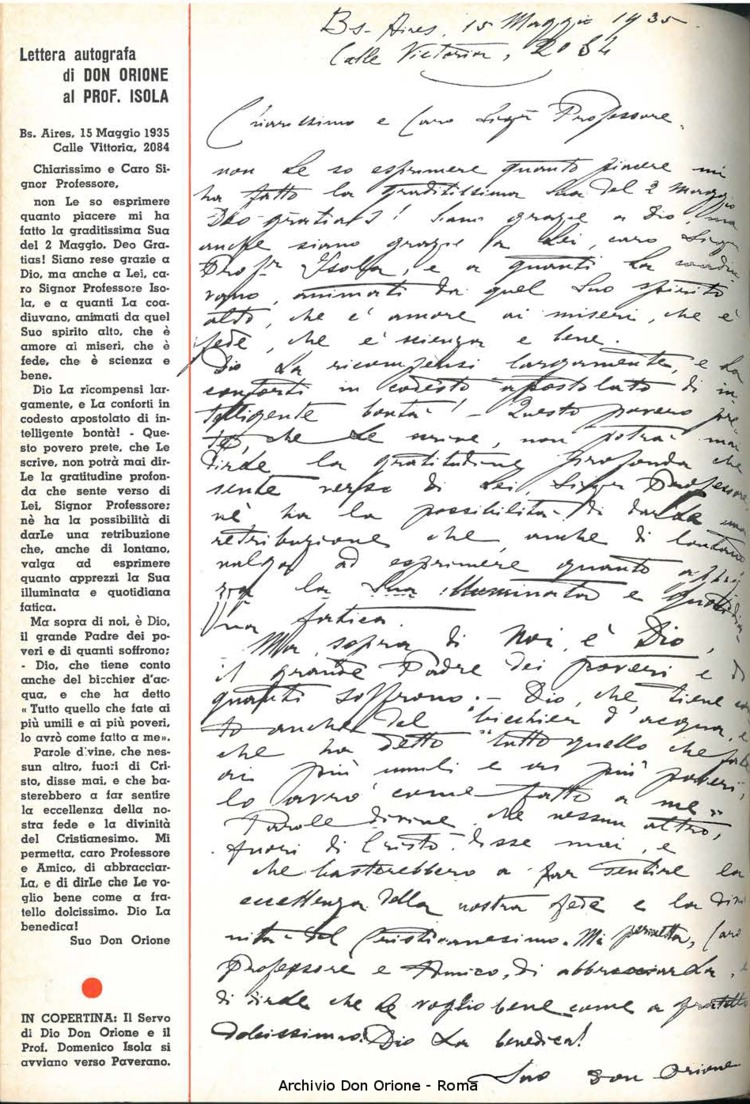 Lettera autografa
di DON ORIONE
al PROF. ISOLA
Bs. Aires, 15 Maggio 1935
Calle Vittoria, 2084
Chiarissimo e Caro Si-
gnor Professore,
non Le so esprimere
quanto piacere mi ha
fatto la graditissima Sua
del 2 Maggio. Deo Gra-
tias! Siano rese grazie a
Dio, ma anche a Lei, ca-
ro Signor Professore Iso-
la, e a quanti La coa-
diuvano, animati da quel
Suo spirito alto, che è
amore ai miseri, che è
fede, che è scienza e
bene.
Dio La ricompensi lar-
gamente, e La conforti in
codesto apostolato di in-
telligente bontà! - Que-
sto povero prete, che Le
scrive, non potrà mai dir-
Le la gratitudine profon-
da che sente verso di
Lei, Signor Professore;
nè ha la possibilità di
darLe una retribuzione
che, anche di lontano,
valga ad esprimere
quanto apprezzi la Sua
illuminata e quotidiana
fatica.
Ma sopra di noi, è Dio,
il grande Padre dei po-
veri e di quanti soffrono;
- Dio, che tiene conto
anche del bicchier d'ac-
qua, e che ha detto
« Tutto quello che fate ai
più umili e ai più poveri,
lo avrò come fatto a me».
Parole divine, che nes-
sun altro, fuori di Cri-
sto, disse mai, e che ba-
sterebbero a far sentire
la eccellenza della no-
stra fede e la divinità
del Cristianesimo. Mi
permetta, caro Professore
e Amico, di abbracciar-
La, e di dirLe che Le vo-
glio bene come a fra-
tello dolcissimo. Dio La
benedica!
Suo Don Orione
IN COPERTINA: Il Servo
di Dio Don Orione e il
Prof. Domenico Isola si
avviano verso Paverano.
Bs. Aires, 15 Maggio 1935.
Calle Victoria, 2084
Chiarissimo e Caro Signor Professore,
non Le so esprimere quanto piacere mi
ha fatto la graditissima Sua del 2 Maggio
Deo gratias! Siano grazie a Dio, ma
anche siano grazie a Lei, caro Signor
Prof.r Isola, e a quanti La coadiu-
vano, animati da quel Suo spirito
alto, che è amore ai miseri, che è
fede, che è scienza e bene.
Dio La ricompensi largamente, e La
conforti in codesto apostolato di in-
telligente bontà! - Questo povero pre-
te, che Le scrive, non potrà mai
dirLe la gratitudine profonda che
sente verso di Lei, Signor Professore
nè ha la possibilità di darLe una
retribuzione che, anche di lontano
valga ad esprimere quanto apprez-
zi la Sua illuminata e quotidia-
na fatica.
Ma, sopra di noi, è Dio,
il grande Padre dei poveri e di
quanti soffrono: - Dio, che tiene con-
to anche del bicchier d'acqua, e
che ha detto "tutto quello che fate
ai più umili e ai più poveri,
lo avrò come fatto a me".
Parole divine, che nessun altro,
fuori di Cristo, disse mai, e
che basterebbero a far sentire la
eccellenza della nostra fede e la divi-
nità del Cristianesimo. Mi permetta, Caro
Professore e Amico, di abbracciarLa, e
di dirLe che Le voglio bene come a fratello
dolcissimo. Dio La benedica!
Suo Don Orione
Archivio Don Orione - Roma